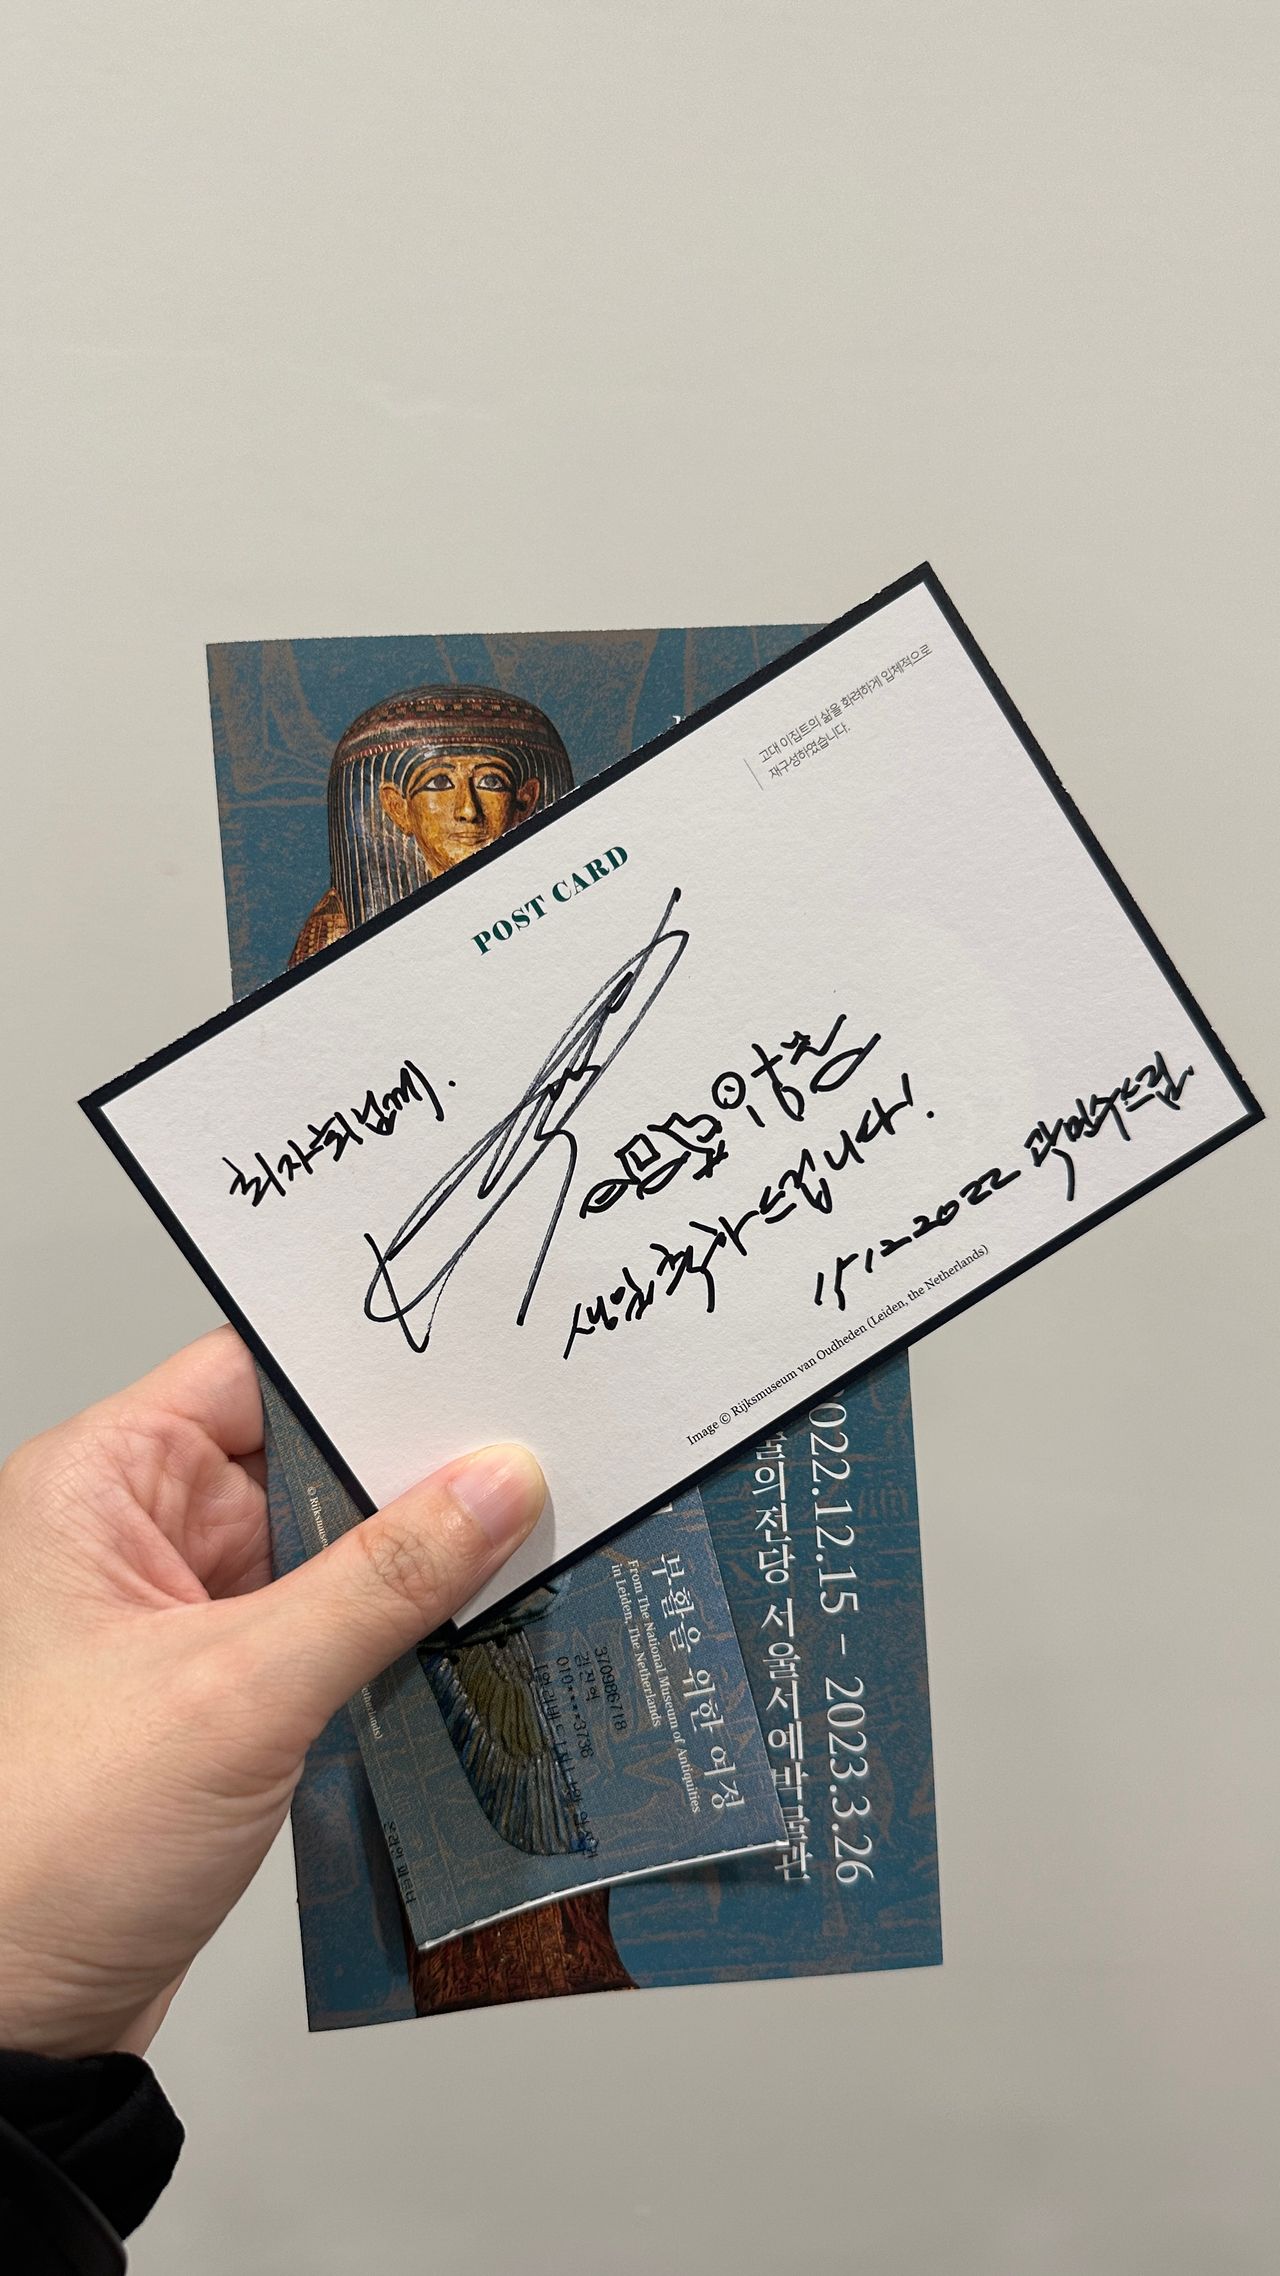 고대 이집트의 삶을 화려하게 입체적으로
재구성하였습니다.
POST CARD
최자희님께.
생일 축하 드립니다!
15 12 2022 곽민수 드림.
Image © Rijksmuseum van Oudheden (Leiden, the Netherlands)
2022.12.15 - 2023.3.26
술의전당 서울서예박물관
부활을 위한 여정
From The National Museum of Antiquities
in Leiden, The Netherlands
370986718
010-****3736
© Rijksmuseu
etherlands)